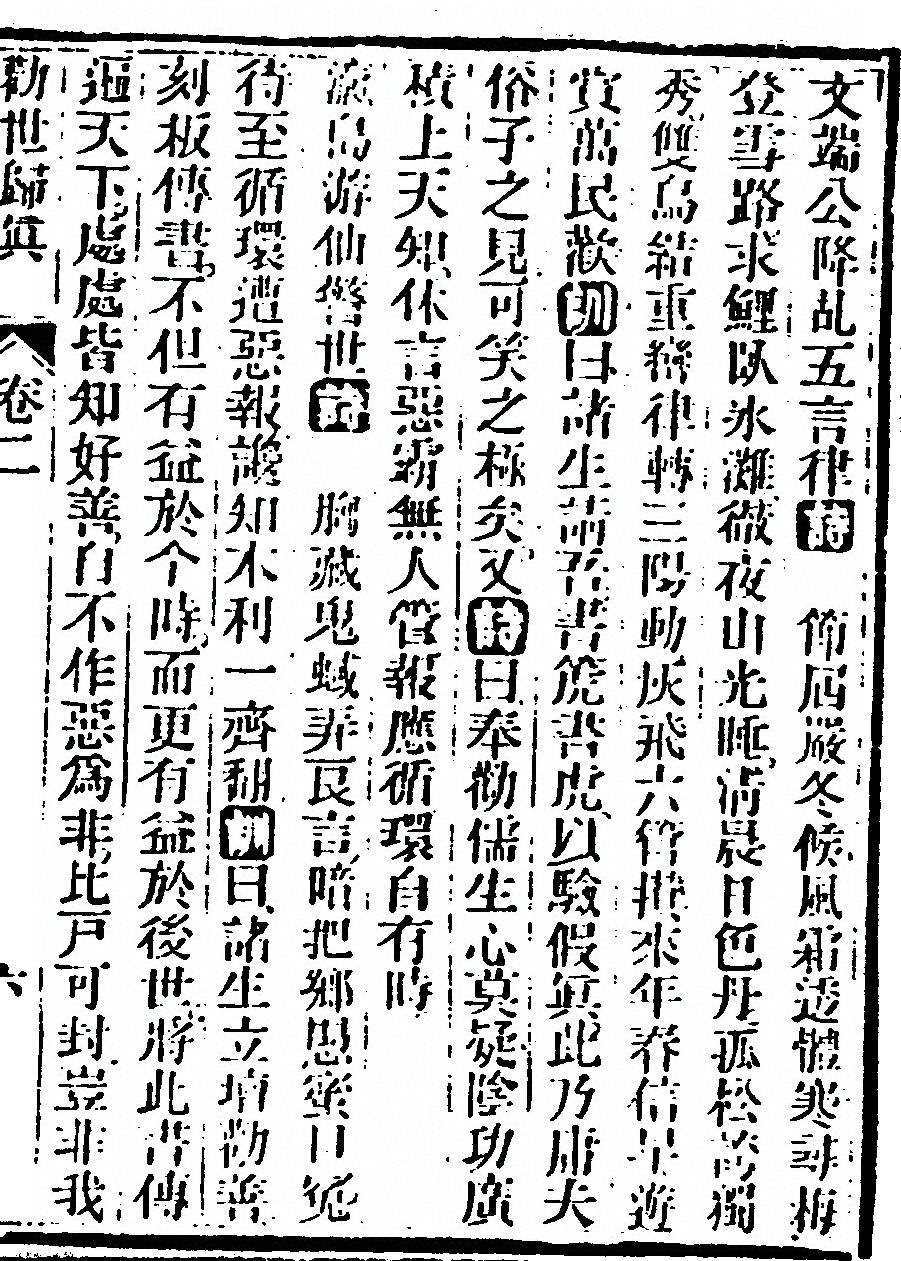 文端公降乩五言律詩　節屆嚴冬候風霜透體寒尋梅
登雪路求鯉臥氷灘夜山光睡清晨日色丹孤松高獨
秀雙鳥結重律轉三陽動灰飛六管來年春信早遊
賞萬民歡訓曰諸生請吾書虎書虎以驗假眞此乃庸夫
俗子之見可笑之極矣又詩曰奉勸儒生心莫疑陰功廣
積上天知休言惡霸無人管報應循環自有時
瀛島游仙警世詩　胸藏鬼蜮弄良言暗把鄉愚蜜口
待至循環遭惡報纔知不利一齊翻訓曰諸生立壇勸善
刻板傳書不但有益於今時而更有益於後世將此書傳
遍天下處處皆知好善自不作惡為非比戶可封豈非我
勸世歸眞　卷二　六